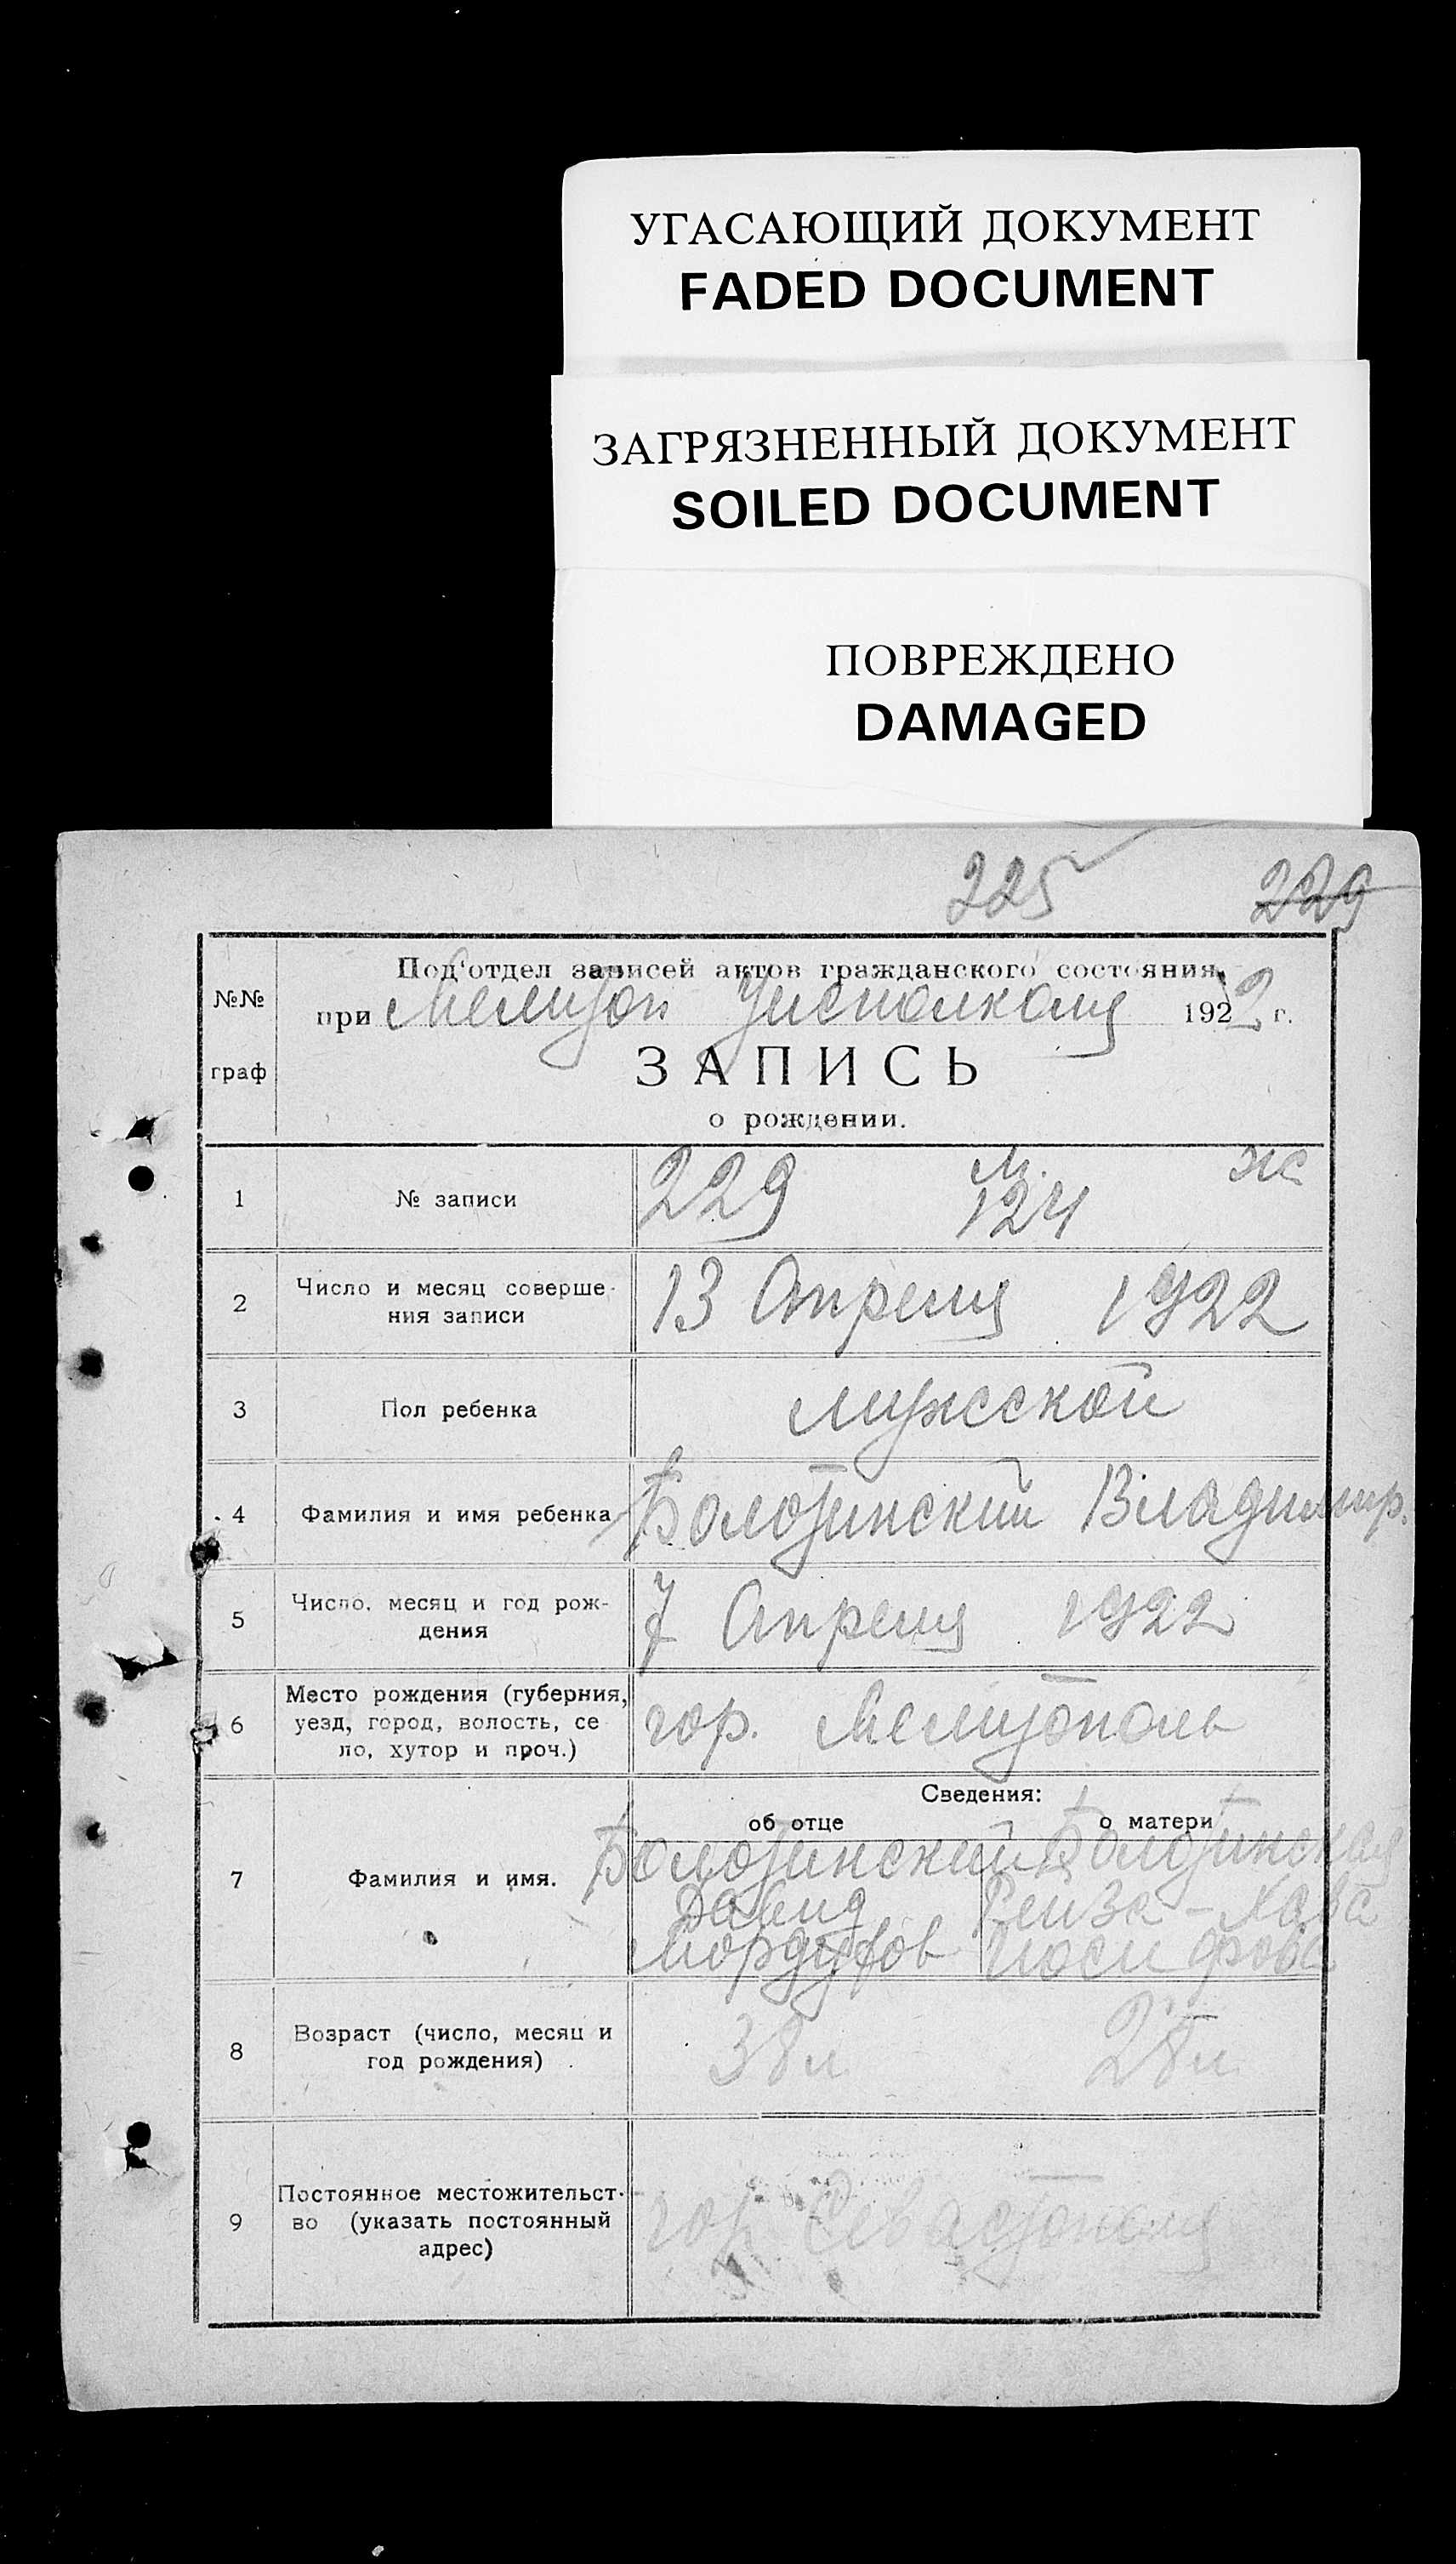 УГАСАЮЩИЙ ДОКУМЕНТ
FADED DOCUMENT
ЗАГРЯЗНЕННЫЙ ДОКУМЕНТ
SOILED DOCUMENT
ПОВРЕЖДЕНО
DAMAGED
225 229
Под'отдел записей актов гражданского состояния,
№№ при Мелитоп Уисполкома 1922 г.
граф ЗАПИСЬ
о рождении.
м. ж
1 № записи 229 124
2 Число и месяц соверше-
ния записи 13 Апреля 1922
3 Пол ребенка мужской
4 Фамилия и имя ребенка Болотинский Владимир.
5 Число, месяц и год рож-
дения 7 Апреля 1922
Место рождения (губерния,
6 уезд, город, волость, се
ло, хутор и проч.) гор. Мелитополь
Сведения:
об отце о матери
7 Фамилия и имя. Болотинский Болотинская
Давид Рейза-Хава
Мордухов Иосифова
8 Возраст (число, месяц и
год рождения) 38 л 28 л
Постоянное местожительст-
9 во (указать постоянный гор Севастополь
адрес)